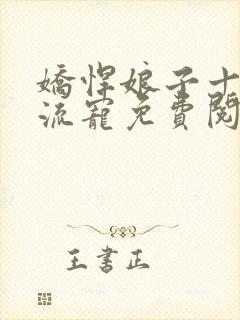 嬌悍娘子十
流寵免費閱
王書正